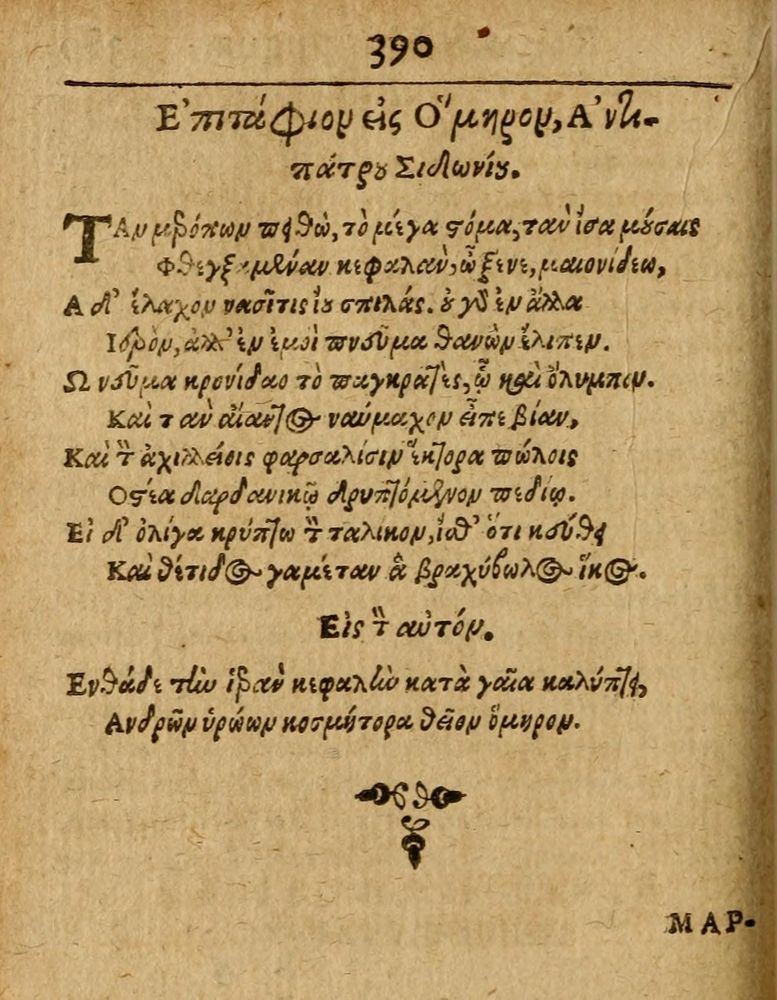 390
Ἐπιτάφιον εἰς Ὅμηρον, Ἀντι-
πάτρου Σιδωνίου.
ΤΑν μερόπων πειθὼ, τὸ μέγα στόμα, τὰν ἴσα μούσαις
Φθεγξαμέναν κεφαλὰν, ὦ ξεῖνε, μαιονίδεω,
Α δ' ἔλαχον νασῖτις ἴου σπιλάς. οὐ γὸ ἐν ἄλλα
Ιερὸν, ἀλλ' ἐν ἐμοὶ πνεῦμα θανὼν ἔλιπεν.
Ω νεῦμα κρονίδαο τὸ παγκρατὲς, ᾧ καὶ ὄλυμπον.
Καὶ τὰν αἴαντος ναύμαχον εἶπε βίαν,
Καὶ τὸν ἀχιλλείοις φαρσαλίσιν ἕκτορα πώλοις
Οστέα δαρδανικῷ δρυπτόμενον πεδίῳ.
Εἰ δ' ὀλίγα κρύπτω τὸν ταλίκον, ἴσθ' ὅτι κεύθει
Καὶ θέτιδος γαμέταν ἁ βραχύβωλος ἴκος.
Εἰς τὸν αὐτόν.
Ενθάδε τὴν ἱερὰν κεφαλὴν κατὰ γαῖα καλύπτει,
Ανδρῶν ἡρώων κοσμήτορα θεῖον ὅμηρον.
ΜΑΡ-